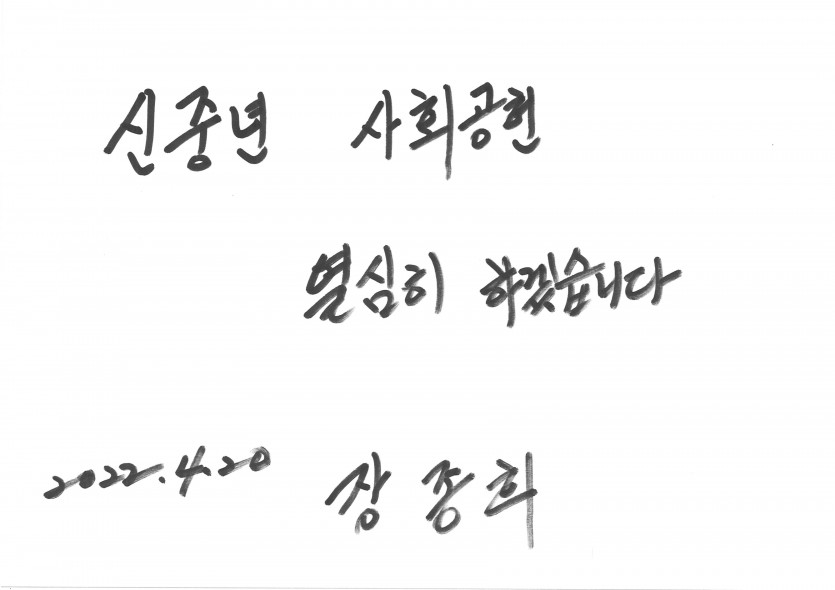 신중년 사회공헌
열심히 하겠습니다
2022.4.20 장종희